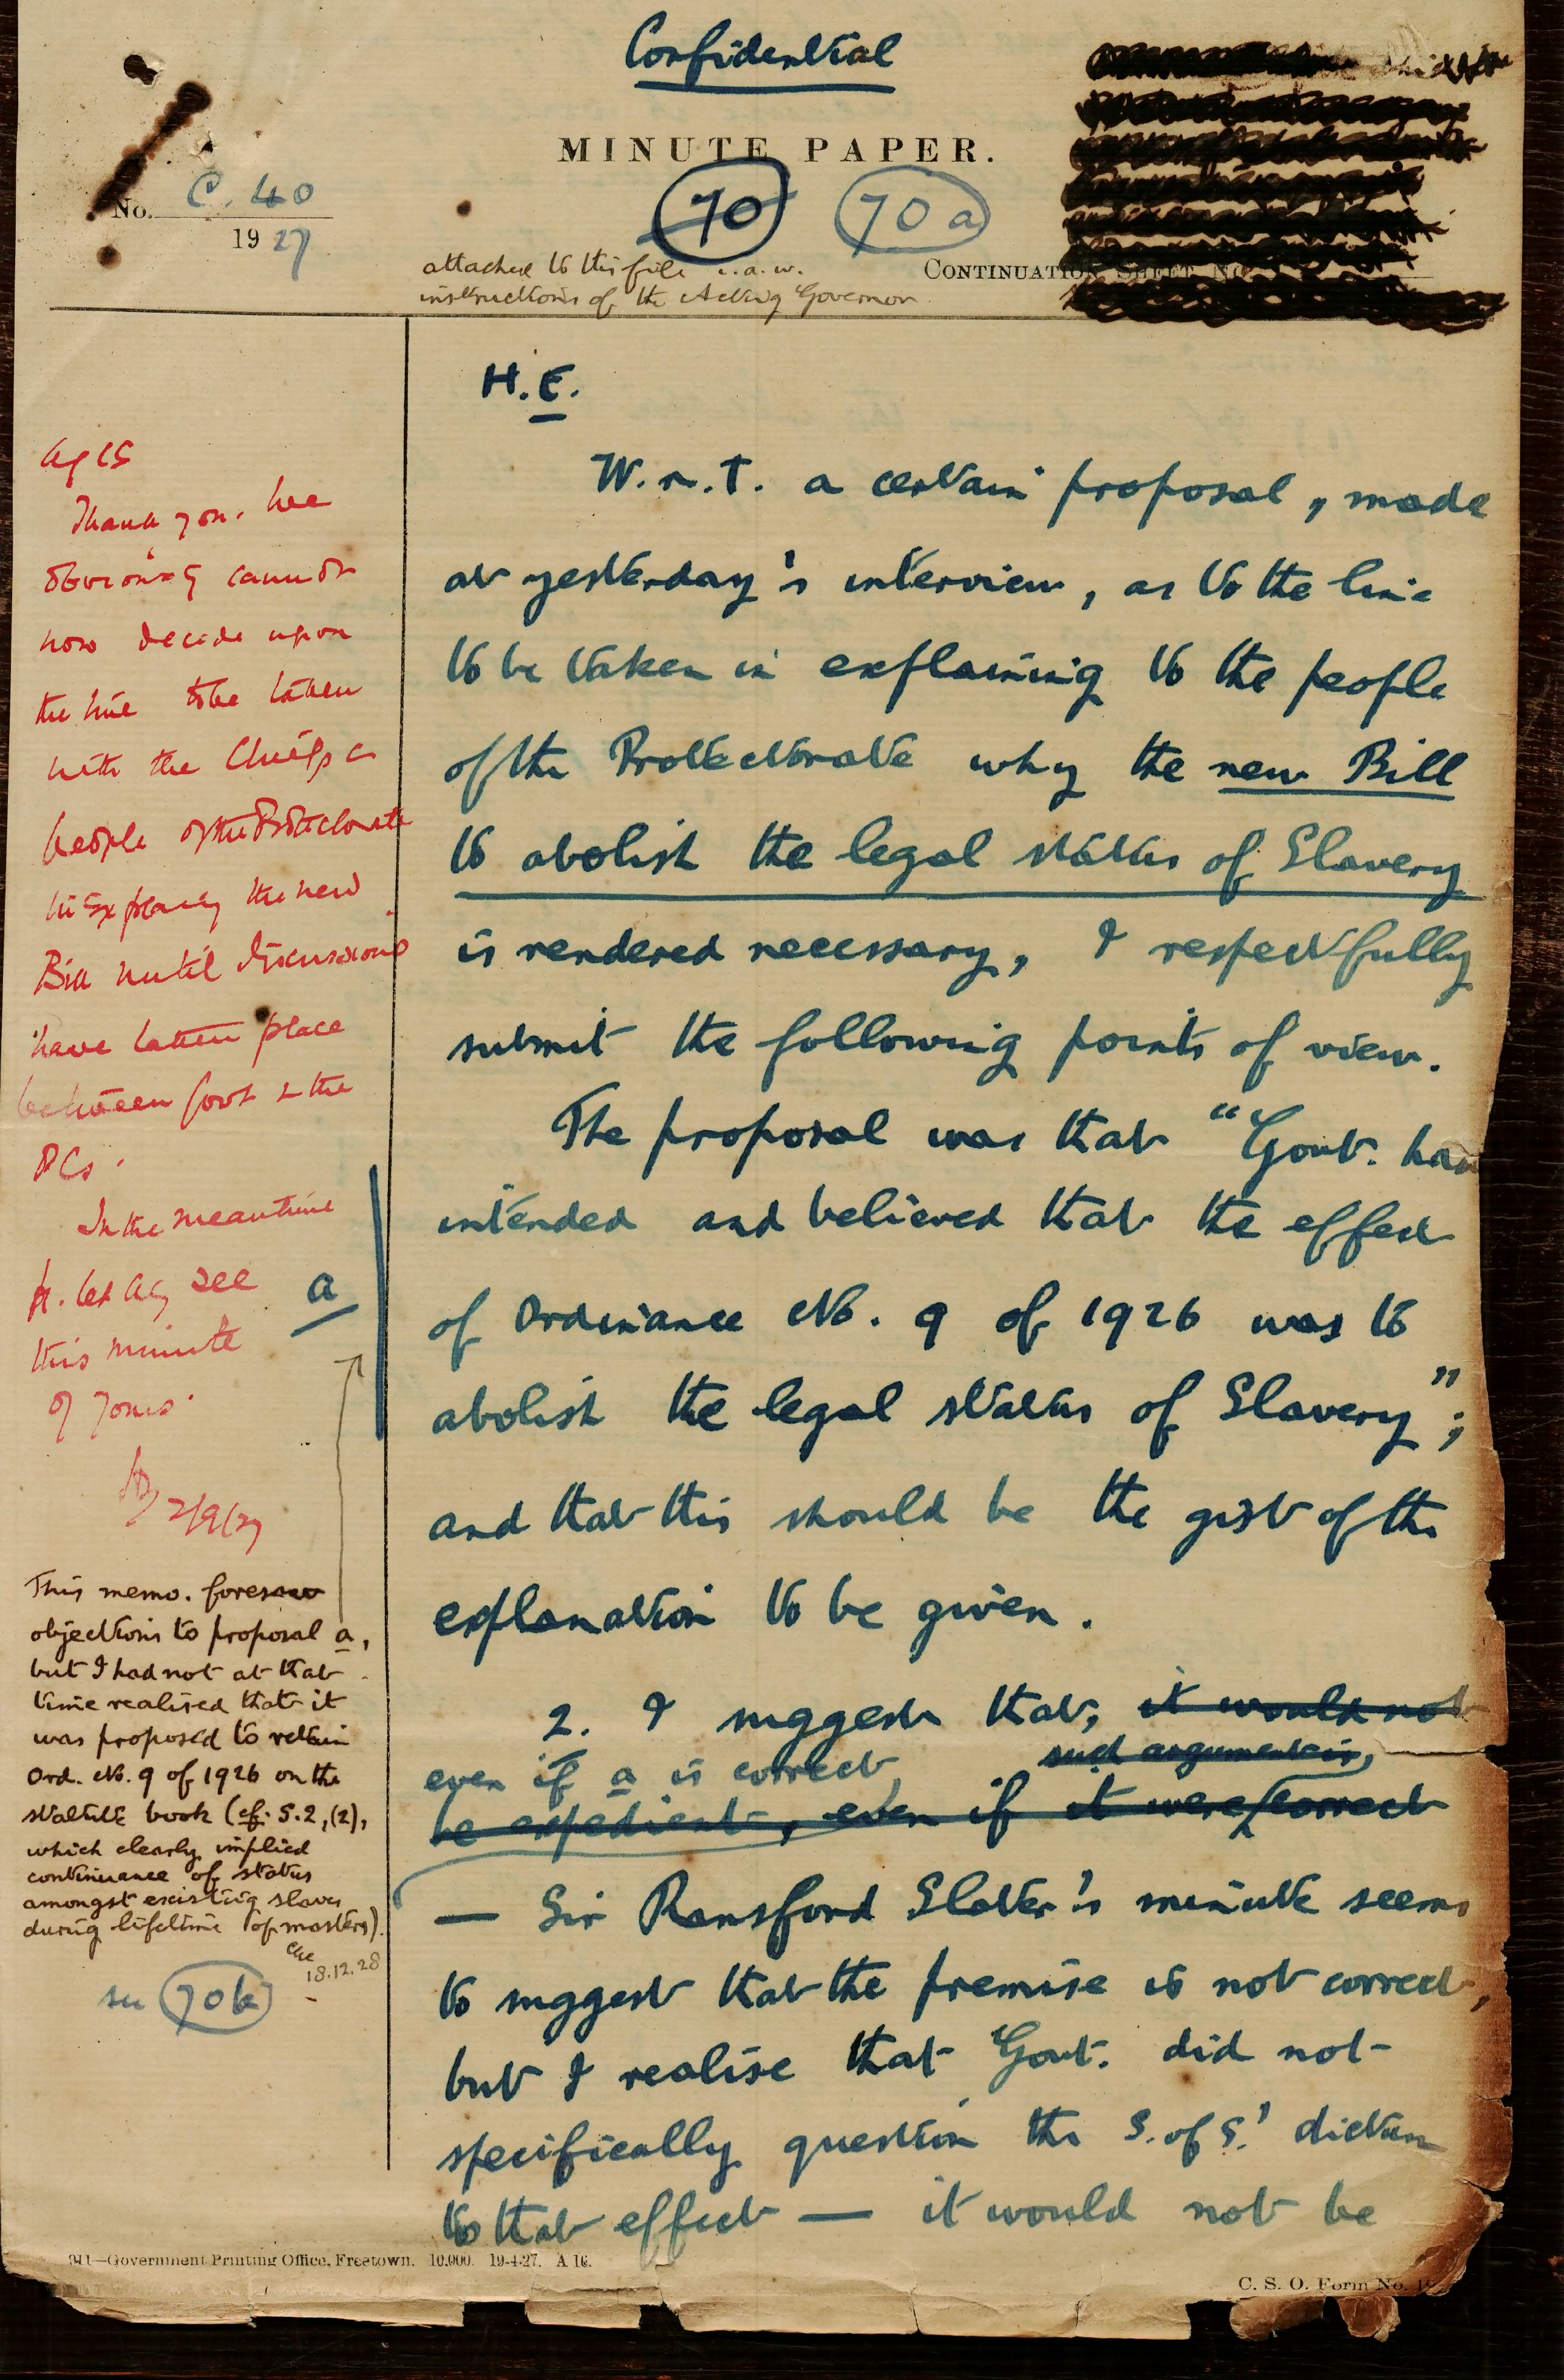 Confidential
MINUTE PAPER.
No. C. 40
1927
70 70a
attached to this file i.a.w.
instructions of the Acting Governor.
CONTINUATION SHEET NO
H.E.
W.r.t. a certain proposal, made
at yesterday's interview, as to the line
to be taken in explaining to the people
of the Protectorate why the new Bill
to abolish the legal status of Slavery
is rendered necessary, I respectfully
submit the following points of view.
The proposal was that "Govt. had
intended and believed that the effect
of Ordinance No. 9 of 1926 was to
abolish the legal status of Slavery";
and that this should be the gist of the
explanation to be given.
2. I suggest that, it would not
even if a is correct such argument is,
be expedient, even if it were correct
— Sir Ransford Slater's minute seems
to suggest that the premise is not correct,
but I realise that Govt. did not
specifically question the S. of S.' dictum
to that effect — it would not be
Ag CS
Thank you. We
obviously cannot
now decide upon
the line to be taken
with the Chiefs &
people of the Protectorate
in explaining the new
Bill until discussions
have taken place
between Govt & the
PCs.
In the meantime
pl. let AG see
this minute
of yours.
2/9/27
a
This memo. foresaw
objections to proposal a,
but I had not at that
time realised that it
was proposed to retain
Ord. No. 9 of 1926 on the
statute book (cf. S.2,(2),
which clearly implied
continuance of status
amongst existing slaves
during lifetime of masters).
18.12.28
see 70b
311—Government Printing Office, Freetown. 10,000. 19-4-27. A 16.
C. S. O. Form No.